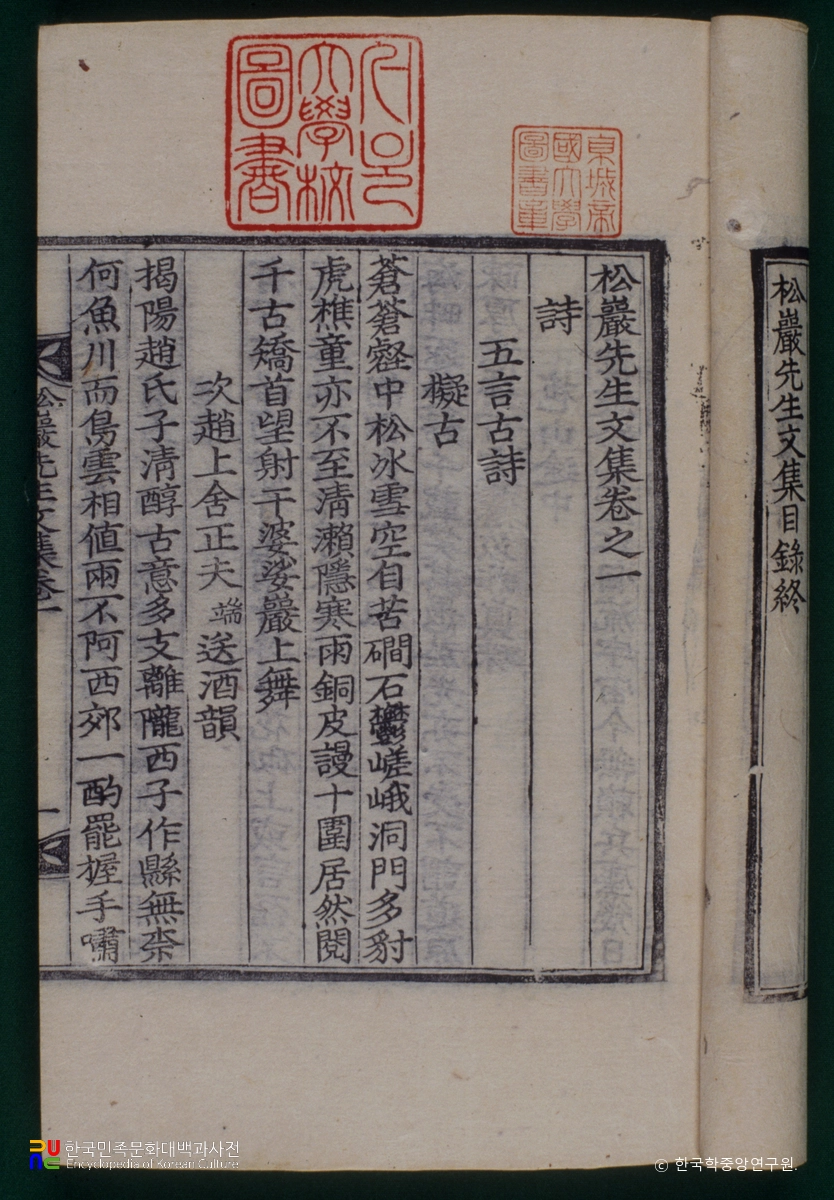 松巖先生文集目錄終
松巖先生文集卷之一
詩
五言古詩
擬古
蒼蒼壑中松冰雪空自苦磵石鬱嵯峨洞門多豺
虎樵童亦不至淸瀨隱寒雨銅皮謾十圍居然閱
千古矯首望射干婆娑巖上舞
次趙上舍正夫 端 送酒韻
揭陽趙氏子淸醇古意多支離隴西子作縣無柰
何魚川而鳧雲相値兩不阿西郊一酌罷握手嘯
松巖先生文集卷一
一
京城帝
國大學
圖書章
大學校
圖書
한국민족문화대백과사전
Encyclopedia of Korean Culture
© 한국학중앙연구원.